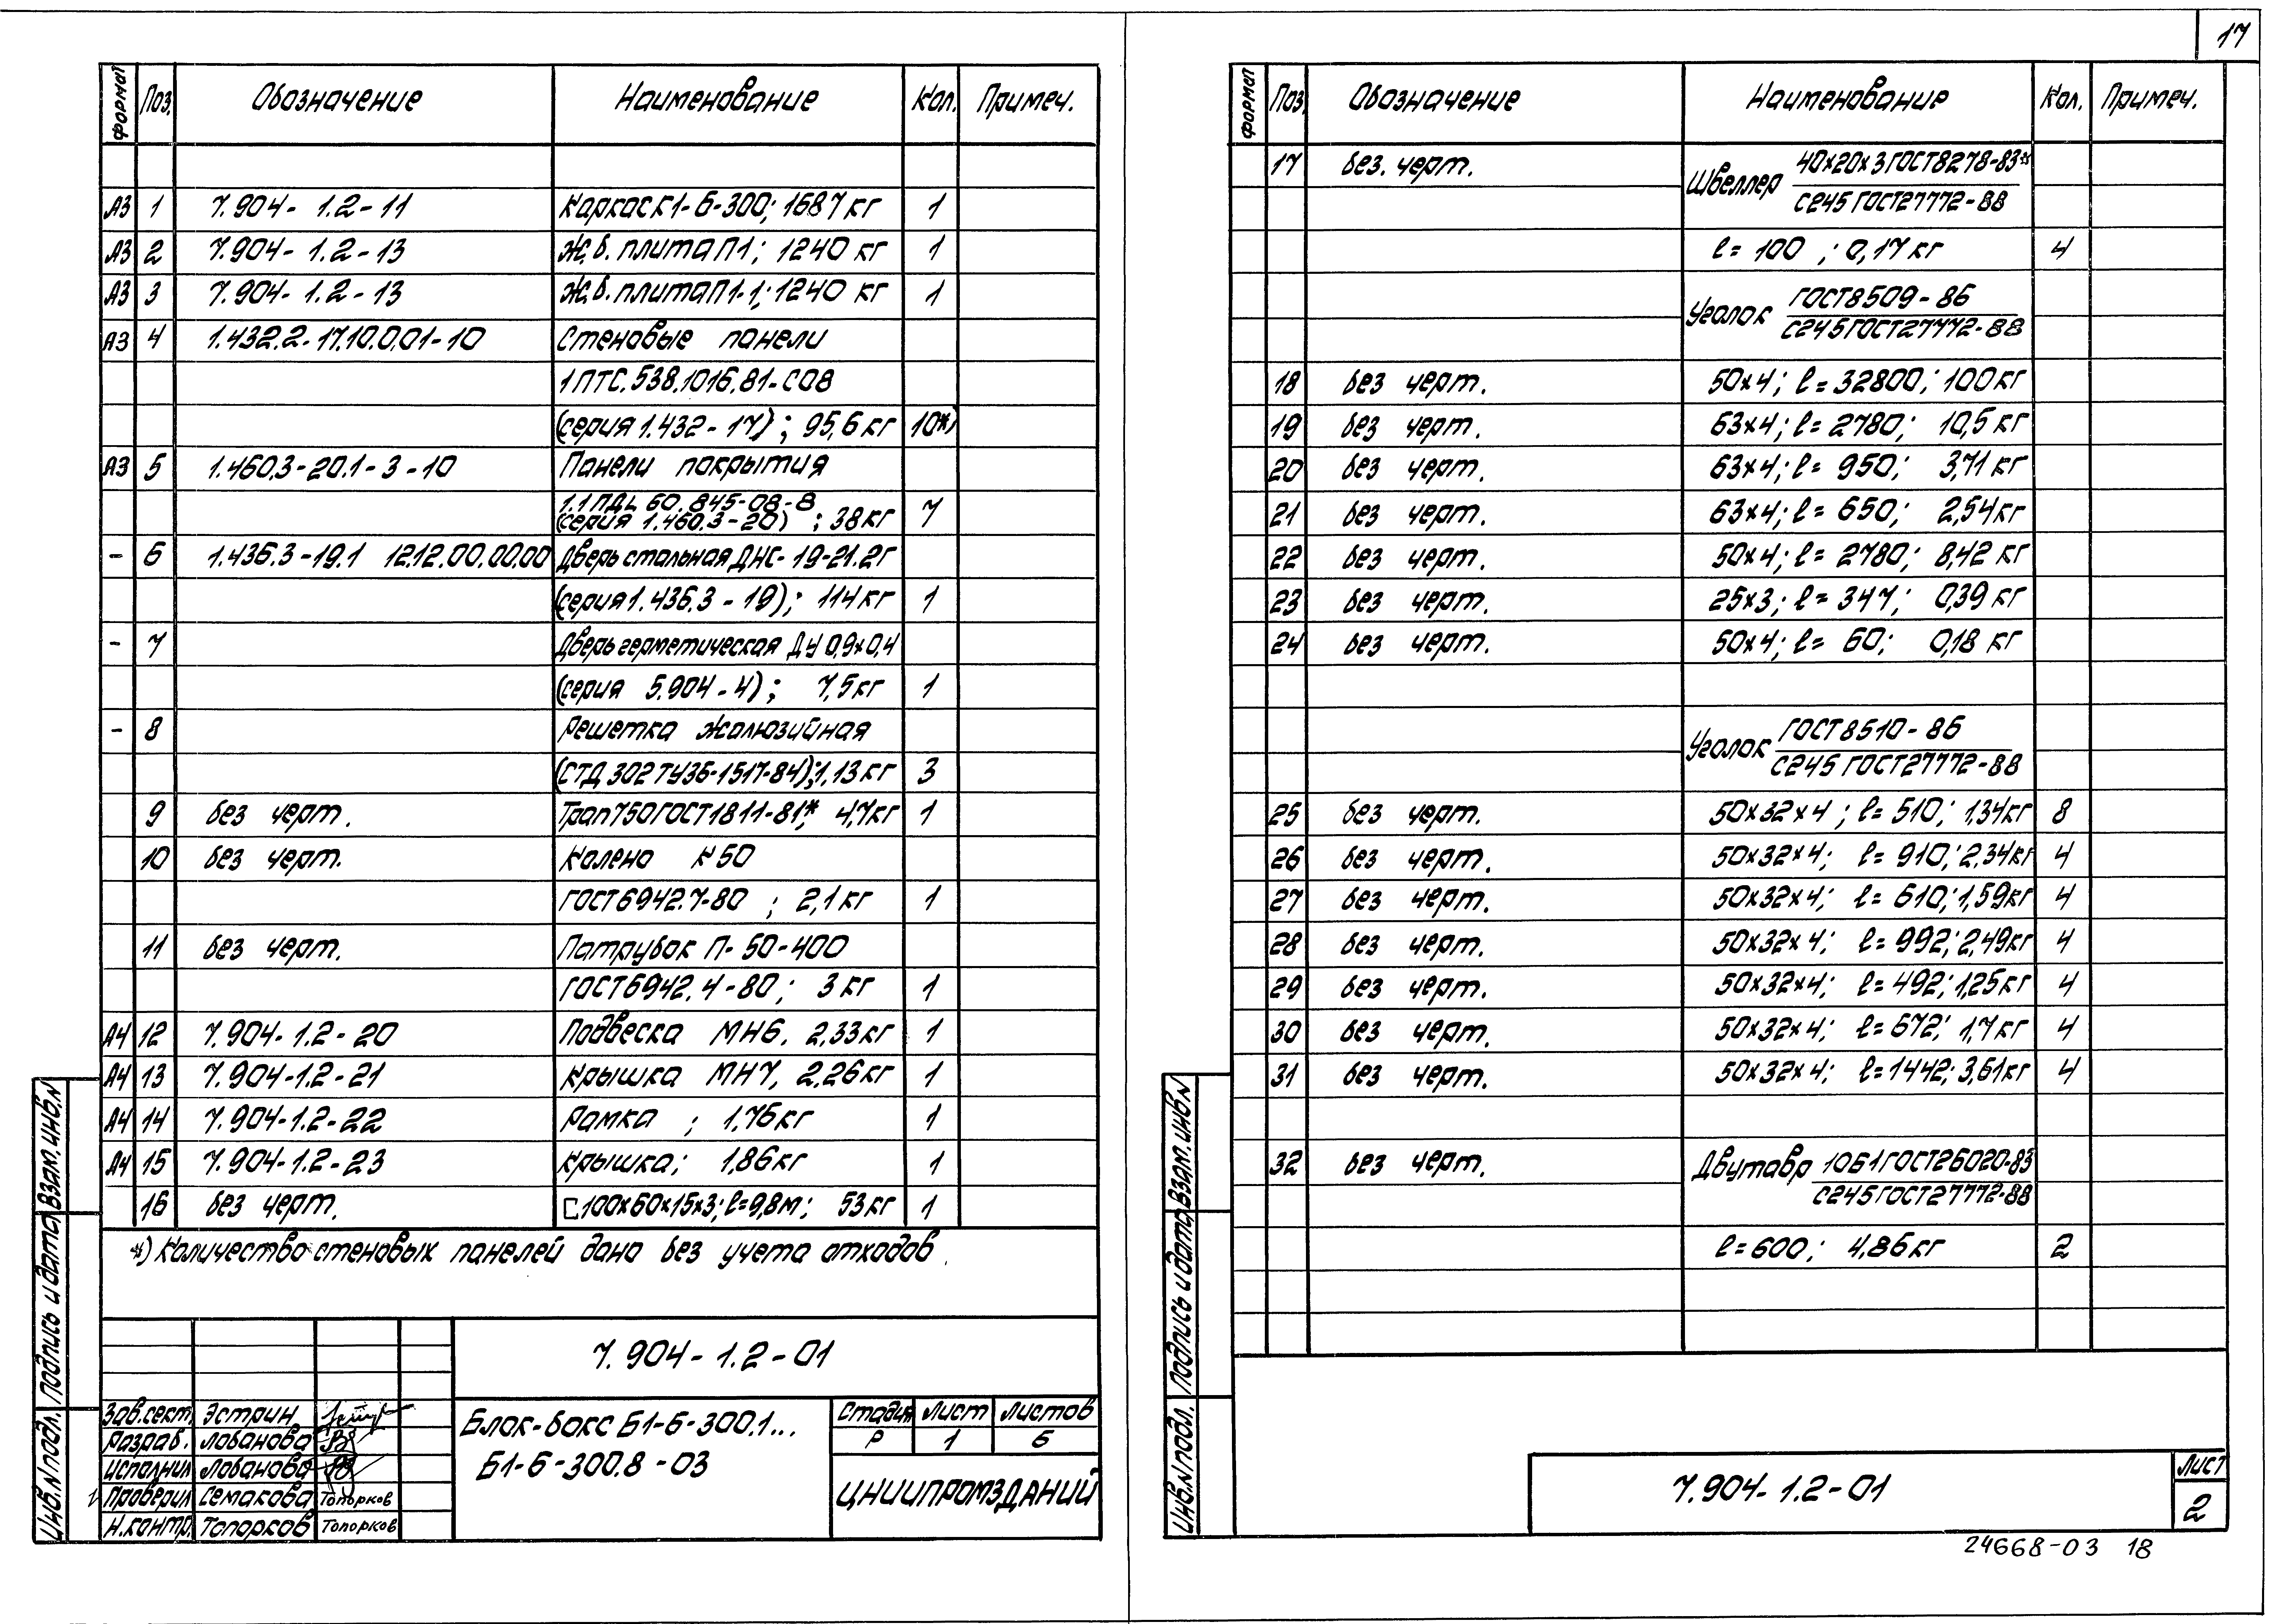 17
Формат Поз. Обозначение Наименование Кол. Примеч.
А3 1 7.904-1.2-11 Каркас К1-6-300; 1687 кг 1
А3 2 7.904-1.2-13 Ж.б. плита П1; 1240 кг 1
А3 3 7.904-1.2-13 Ж.б. плита П1-1; 1240 кг 1
А3 4 1.432.2-17.10.0.01-10 Стеновые панели
1ПТС.538.1016.81-С08
(серия 1.432-17); 95,6 кг 10*)
А3 5 1.460.3-20.1-3-10 Панели покрытия
1.1 ПДL 60.845-08-8
(серия 1.460.3-20); 38 кг 7
- 6 1.436.3-19.1 12.12.00.00.00 Дверь стальная ДНС-19-21.2г
(серия 1.436.3-19); 114 кг 1
- 7 Дверь герметическая ДУ 0,9х0,4
(серия 5.904-4); 7,5 кг 1
- 8 Решетка жалюзийная
(СТД 302 ТУ36-1517-84); 1,13 кг 3
9 без черт. Трап Т50 ГОСТ 1811-81*; 4,7 кг 1
10 без черт. Колено К50
ГОСТ 6942.7-80 ; 2,1 кг 1
11 без черт. Патрубок П-50-400
ГОСТ 6942.4-80; 3 кг 1
А4 12 7.904-1.2-20 Подвеска МН6, 2,33 кг 1
А4 13 7.904-1.2-21 Крышка МН7, 2,26 кг 1
А4 14 7.904-1.2-22 Рамка ; 1,76 кг 1
А4 15 7.904-1.2-23 Крышка; 1,86 кг 1
16 без черт. [ 100х60х15х3; ℓ=9,8м; 53 кг 1
*) Количество стеновых панелей дано без учета отходов.
7.904-1.2-01
Зав.сект. Эстрин
Разраб. Лобанова
Исполнил Лобанова
Проверил Семакова Топорков
Н.контр. Топорков Топорков
Блок-бокс Б1-6-300.1...
Б1-6-300.8-03
Стадия Лист Листов
Р 1 6
ЦНИИПРОМЗДАНИЙ
Инв.N подл. Подпись и дата Взам.инв.N
Формат Поз. Обозначение Наименование Кол. Примеч.
17 без. черт. Швеллер 40х20х3 ГОСТ 8278-83*
С245 ГОСТ 27772-88
ℓ= 100 ; 0,17 кг 4
Уголок ГОСТ 8509-86
С245 ГОСТ 27772-88
18 без черт. 50х4; ℓ= 32800; 100 кг
19 без черт. 63х4; ℓ= 2780; 10,5 кг
20 без черт. 63х4; ℓ= 950; 3,71 кг
21 без черт. 63х4; ℓ= 650; 2,54 кг
22 без черт. 50х4; ℓ= 2780; 8,42 кг
23 без черт. 25х3; ℓ= 347; 0,39 кг
24 без черт. 50х4; ℓ= 60; 0,18 кг
Уголок ГОСТ 8510-86
С245 ГОСТ 27772-88
25 без черт. 50х32х4; ℓ= 510; 1,34 кг 8
26 без черт. 50х32х4; ℓ= 910; 2,34 кг 4
27 без черт. 50х32х4; ℓ= 610; 1,59 кг 4
28 без черт. 50х32х4; ℓ= 992; 2,49 кг 4
29 без черт. 50х32х4; ℓ= 492; 1,25 кг 4
30 без черт. 50х32х4; ℓ= 672; 1,7 кг 4
31 без черт. 50х32х4; ℓ= 1442; 3,61 кг 4
32 без черт. Двутавр 10Б1 ГОСТ 26020-83
С245 ГОСТ 27772-88
ℓ= 600; 4,86 кг 2
7.904-1.2-01
Лист
2
Инв.N подл. Подпись и дата Взам.инв.N
24668-03 18